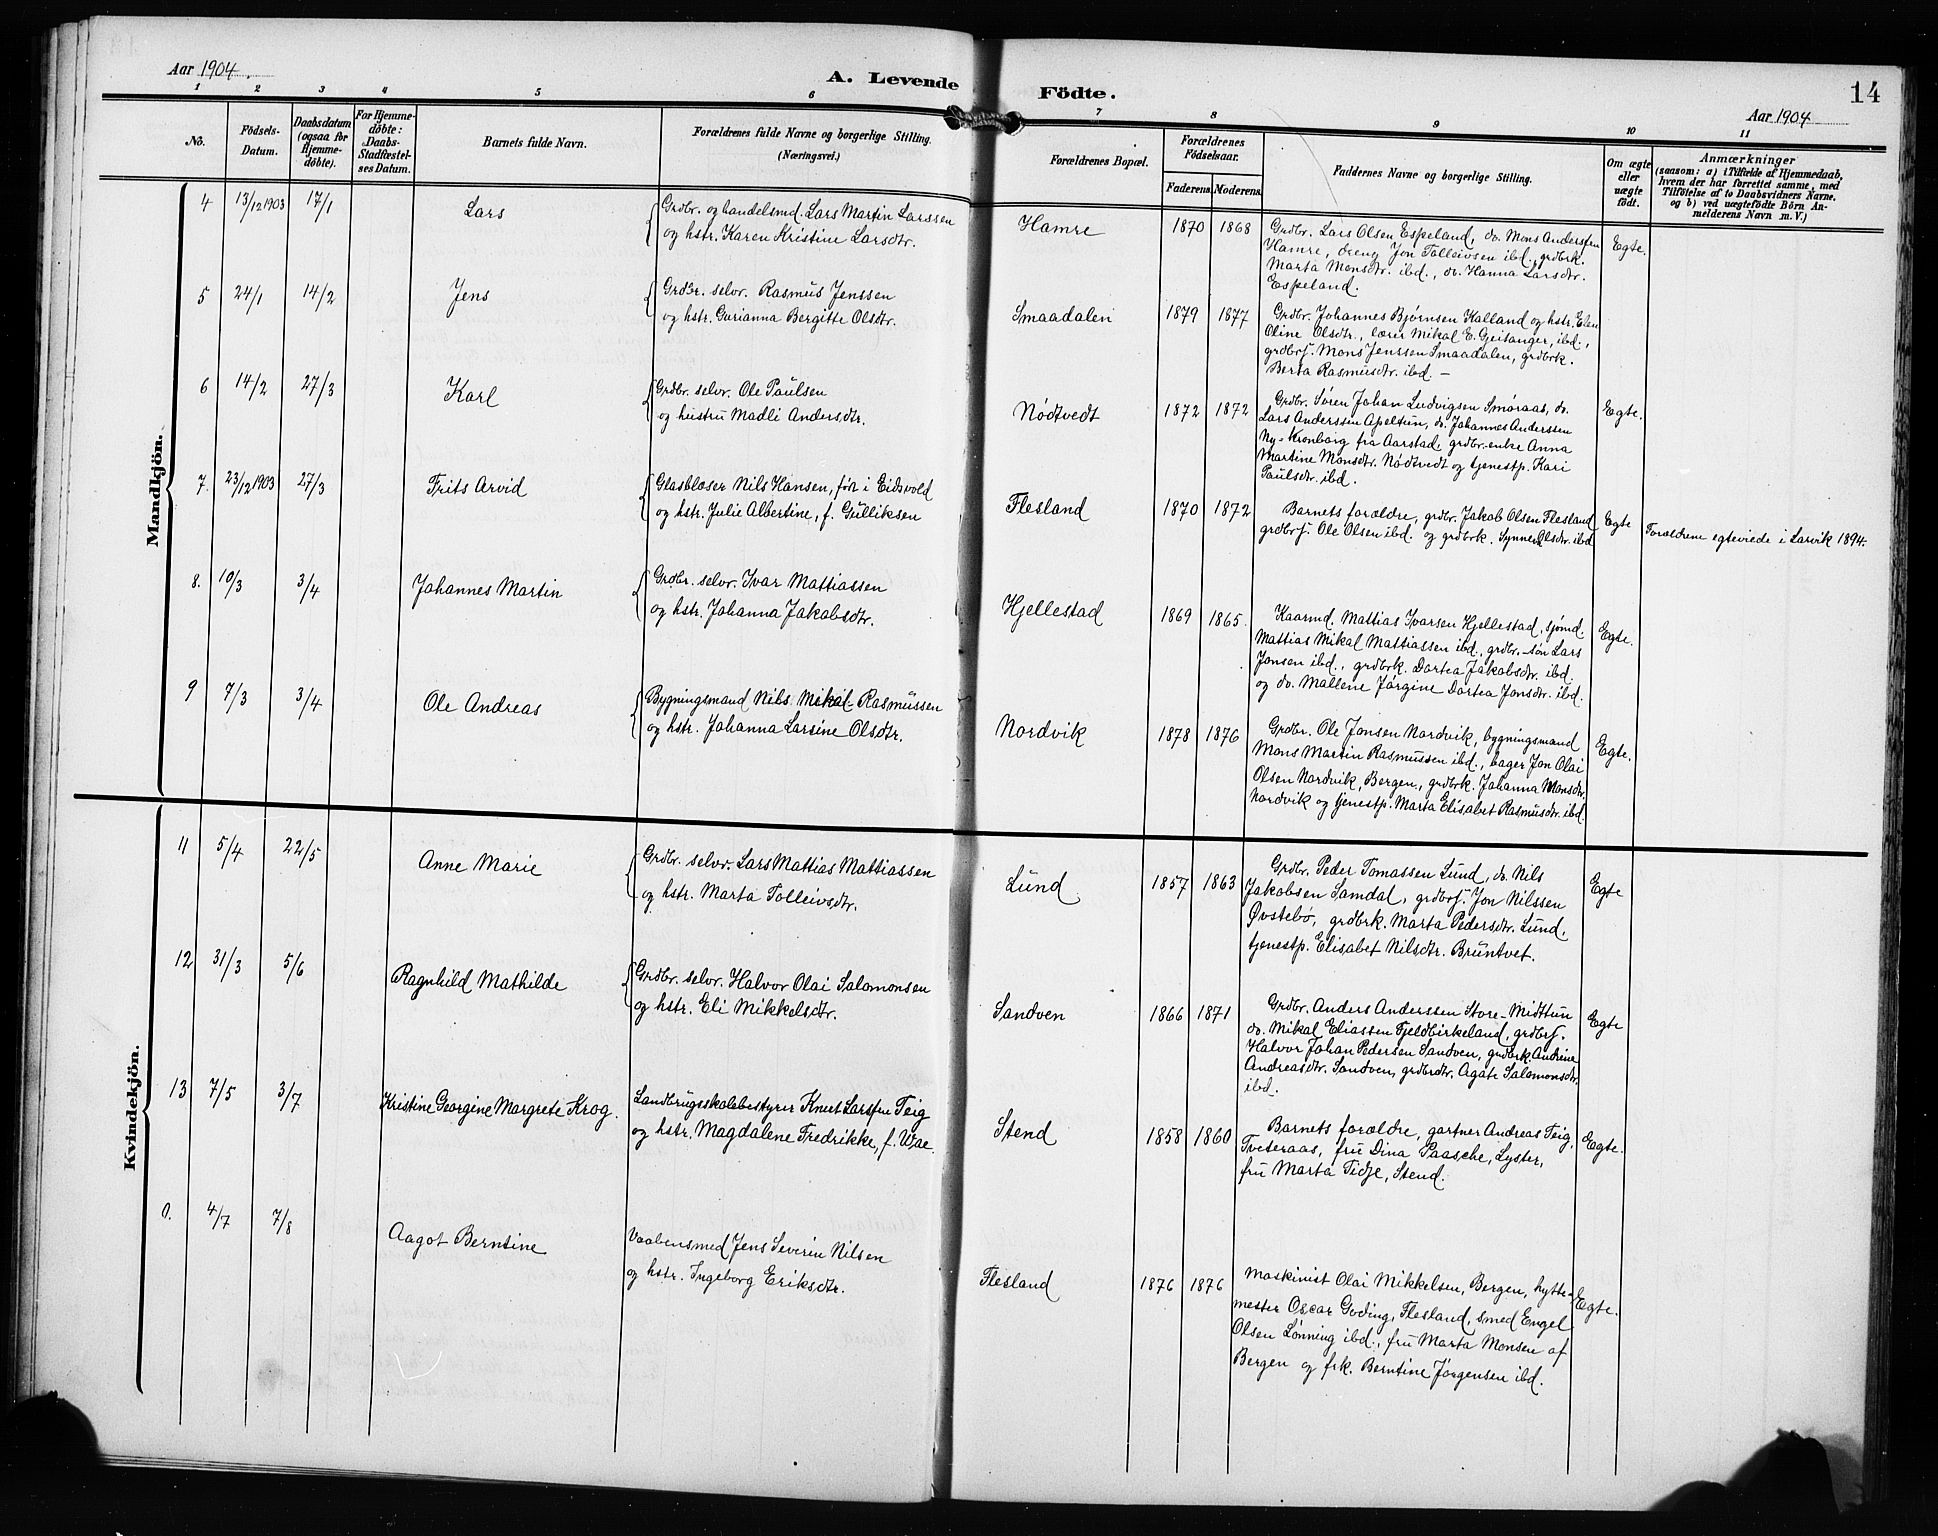 Aar 1904.
A. Levende Födte.
14
Aar 1904
1 2 3 4 5 6 7 8 9 10 11
No.
Födsels-
Datum.
Daabsdatum
(ogsaa for
Hjemme-
döbte).
For Hjemme-
döbte:
Daabs-
Stadfæstel-
ses Datum.
Barnets fulde Navn.
Forældrenes fulde Navne og borgerlige Stilling.
(Næringsvei.)
Forældrenes Bopæl.
Forældrenes
Födselsaar.
Faderens. Moderens.
Faddernes Navne og borgerlige Stilling.
Om ægte
eller
uægte
födt.
Anmærkninger
(saasom: a) i Tilfælde af Hjemmedaab,
hvem der har forrettet samme, med
Tilföielse af to Daabsvidners Navne,
og b) ved uægtefödte Börn An-
melderens Navn m. V.)
Mandkjön.
4 13/12 1903 17/1 Lars
Grdbr. og handelsmd. Lars Martin Larssen
og hstr. Karen Kristine Larsdtr.
Hamre 1870 1868
Grdbr. Lars Olsen Espeland, do. Mons Anderssen
Hamre, dreng Jon Tolleivsen ibd., grdbrk.
Marta Monsdtr. ibd., do. Hanna Larsdtr.
Espeland.
Egte.
5 24/1 14/2 Jens
Grdbr. selv. Rasmus Jenssen
og hstr. Gurianna Bergitte Olsdtr.
Smaadalen 1879 1877
Grdbr. Johannes Bjørnsen Kalland og hstr. Elen
Oline Olsdtr., lærer Mikal E. Geitanger, ibd.,
grdbrs. Mons Jenssen Smaadalen, grdbrk.
Berta Rasmusdtr. ibd. –
6 14/2 27/3 Karl
Grdbr. selv. Ole Paulsen
og hustru Madli Andersdtr.
Nödtvedt 1872 1872
Grdbr. Sören Johan Ludvigsen Smøraas, do.
Lars Anderssen Apeltun, do. Johannes Anderssen
Ny-Kronborg fra Aarstad, grdbr. enke Anna
Martine Monsdtr. Nödtvedt og tjenestp. Kari
Paulsdtr. ibd.
Egte.
7. 23/12 1903 27/3 Frits Arvid
Glasblæser Nils Hansen, født i Eidsvold
og hstr. Julie Albertine, f. Gulliksen
Flesland 1870 1872
Barnets forældre, grdbr. Jakob Olsen Flesland
grdbrs. Ole Olsen ibd. og grdbrk. Synneva Olsdtr. ibd
Egte
Forældrene egteviede i Larvik 1894.
8. 10/3 3/4 Johannes Martin
Grdbr. selv. Ivar Mattiassen
og hstr. Johanna Jakobsdtr.
Hjellestad 1869 1865.
Kaarmd. Mattias Ivarsen Hjellestad, sjømd.
Mattias Mikal Mattiassen ibd., grdbr. søn Lars
Jonsen ibd., grdbrk. Dortea Jakobsdtr. ibd.
og do. Mallene Jørgine Dortea Jonsdtr. ibd.
Egte.
9 7/3 3/4 Ole Andreas
Bygningsmand Nils Mikal Rasmussen
og hstr. Johanna Larsine Olsdtr.
Nordvik 1878 1876
Grdbr. Ole Jonsen Nordvik, bygningsmand
Mons Martin Rasmussen ibd., bager Jon Olai
Olsen Nordvik, Bergen, grdbrk. Johanna Monsdtr.
Nordvik og tjenestp. Marta Elisabet Rasmusdtr. ibd.
Egte.
Kvindekjön.
11 5/4 22/5 Anne Marie
Grdbr. selv. Lars Mattias Mattiassen
og hstr. Marta Tolleivsdtr.
Lund 1857 1863
Grdbr. Peder Tomassen Lund, do. Nils
Jakobsen Samdal, grdbrs. Jon Nilssen
Øvstebø, grdbrk. Marta Pedersdtr. Lund,
tjenestp. Elisabet Nilsdtr. Bruntvet.
Egte
12 31/3 5/6 Ragnhild Mathilde
Grdbr. selv. Halvor Olai Salomonsen
og hstr. Eli Mikkelsdtr.
Sandven 1866 1871
Grdbr. Anders Anderssen Store-Midttun
do. Mikal Eliassen Fjeldbirkeland, grdbrs.
Halvor Johan Pedersen Sandven, grdbrk Andrine
Andreasdtr. Sandven, grdbrdtr. Agate Salomonsdtr.
ibd.
Egte
13 7/5 3/7 Kristine Georgine Margrete Krog.
Landbrugsskolebestyrer Knut Larssen Teig
og hstr. Magdalene Fredrikke, f. Wae.
Stend 1858 1860
Barnets forældre, gartner Andreas Teig,
Tveteraas, fru Dina Paasche, Lyster,
fru Marta Tidje, Stend.
Egte.
4/7 7/8 Aagot Berntine
Vaabensmed Jens Severin Nilsen
og hstr. Ingeborg Eriksdtr.
Flesland 1876 1876
Maskinist Olai Mikkelsen, Bergen, hytte-
mester Oscar Goding, Flesland, smed Engel
Olsen Lønning ibd., fru Marta Monsen af
Bergen og frk. Berntine Jørgensen ibd.
Egte.